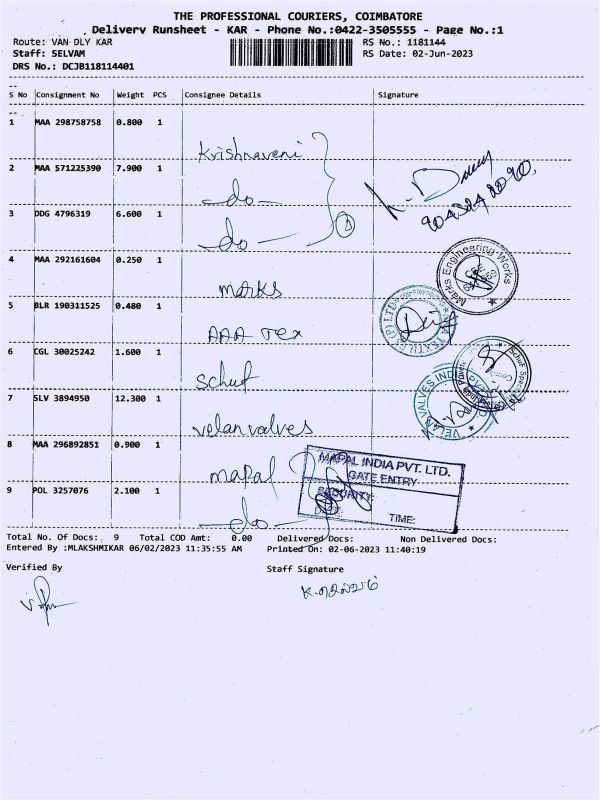 THE PROFESSIONAL COURIERS, COIMBATORE
Delivery Runsheet - KAR - Phone No.:0422-3505555 - Page No.:1
Route: VAN DLY KAR RS No.: 1181144
Staff: SELVAM RS Date: 02-Jun-2023
DRS No.: DCJB118114401
S No Consignment No Weight PCS Consignee Details Signature
1 MAA 298758758 0.800 1
Krishnaveni
2 MAA 571225390 7.900 1
-do-
3 DDG 4796319 6.600 1
-do-
4 MAA 292161604 0.250 1
marks
Marks Engineering Works
5 BLR 190311525 0.480 1
AAA Tex
6 CGL 30025242 1.600 1
schuf
7 SLV 3894950 12.300 1
velanvalves
VELAN VALVES INDIA
8 MAA 296892851 0.900 1
mapal
MAPAL INDIA PVT. LTD.
GATE ENTRY
SECURITY:
9 POL 3257076 2.100 1
TIME:
-do-
Total No. Of Docs: 9 Total COD Amt: 0.00 Delivered Docs: Non Delivered Docs:
Entered By :MLAKSHMIKAR 06/02/2023 11:35:55 AM Printed On: 02-06-2023 11:40:19
Verified By Staff Signature